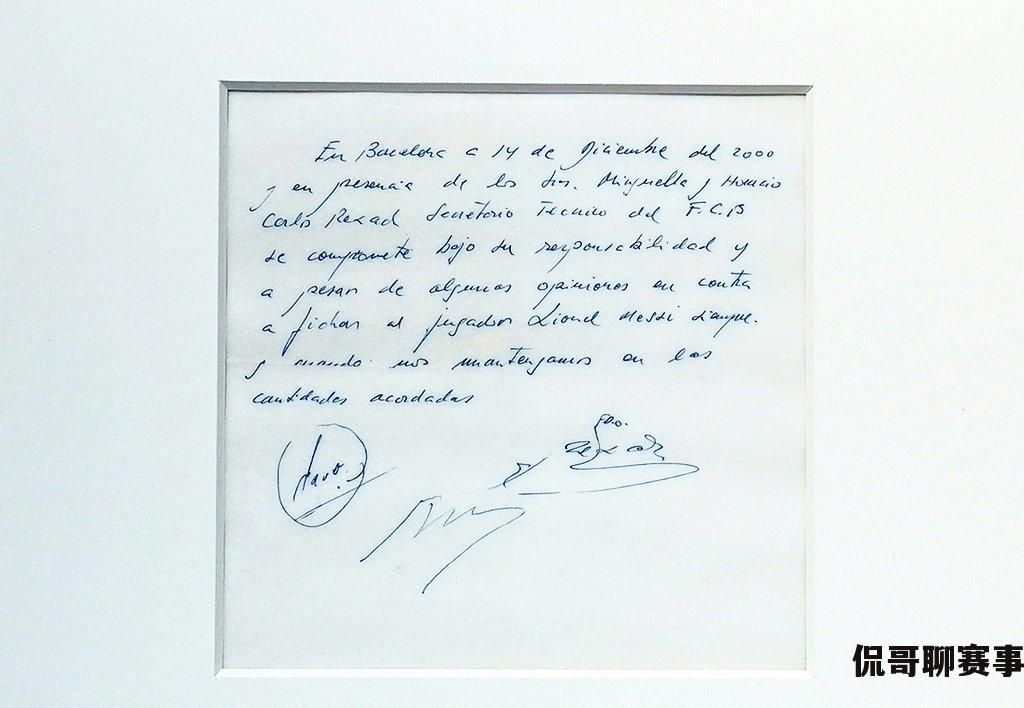 En Barcelona a 14 de Diciembre del 2000
y en presencia de los Srs. Minguella y Horacio
Carles Rexach Secretario Técnico del F.C.B
se compromete bajo su responsabilidad y
a pesar de algunas opiniones en contra
a fichar al jugador Lionel Messi siempre
y cuando nos mantengamos en las
cantidades acordadas
Fdo.
侃哥聊赛事